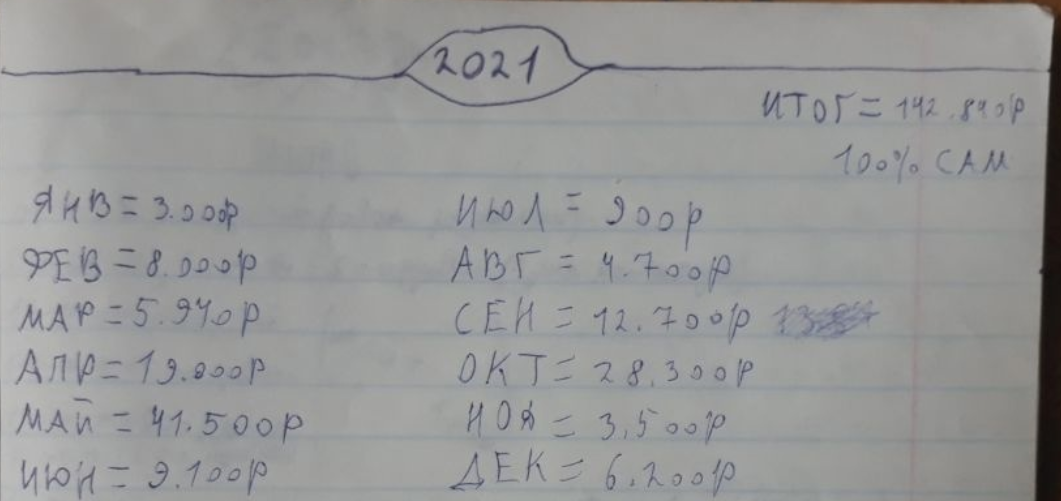 2021
ИТОГ = 142.840р
100% САМ
ЯНВ = 3.000р
ФЕВ = 8.000р
МАР = 5.940р
АПР = 19.000р
МАЙ = 41.500р
ИЮН = 9.100р
ИЮЛ = 900р
АВГ = 4.700р
СЕН = 12.700р
ОКТ = 28.300р
НОЯ = 3.500р
ДЕК = 6.200р